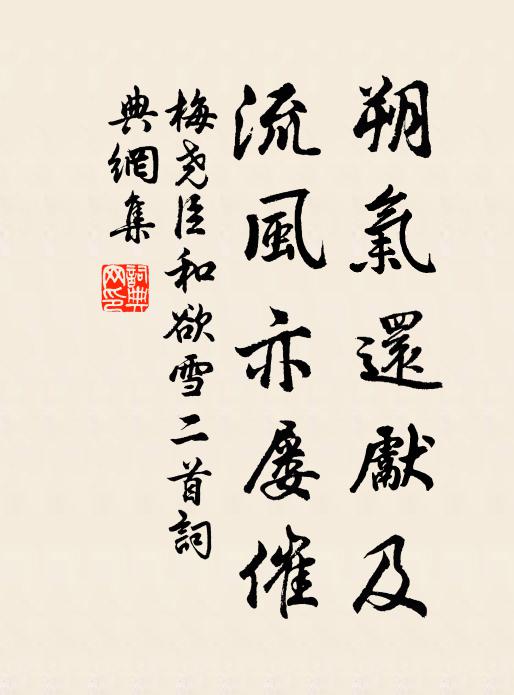 朔氣還獻及
流風亦屢催
梅堯臣和欲雪二首詞
典網集
詞典網印